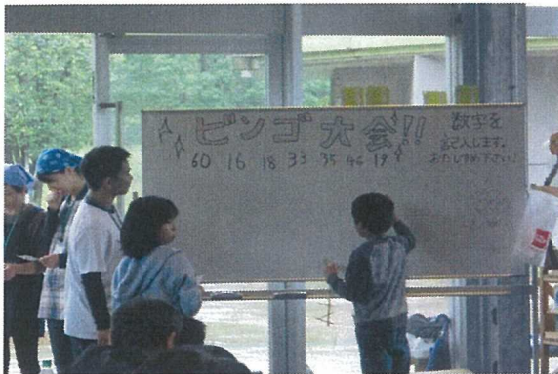 ビンゴ大会!!
60 16 18 33 35 46 19
数字を
記入します。
おたしかめ下さい!